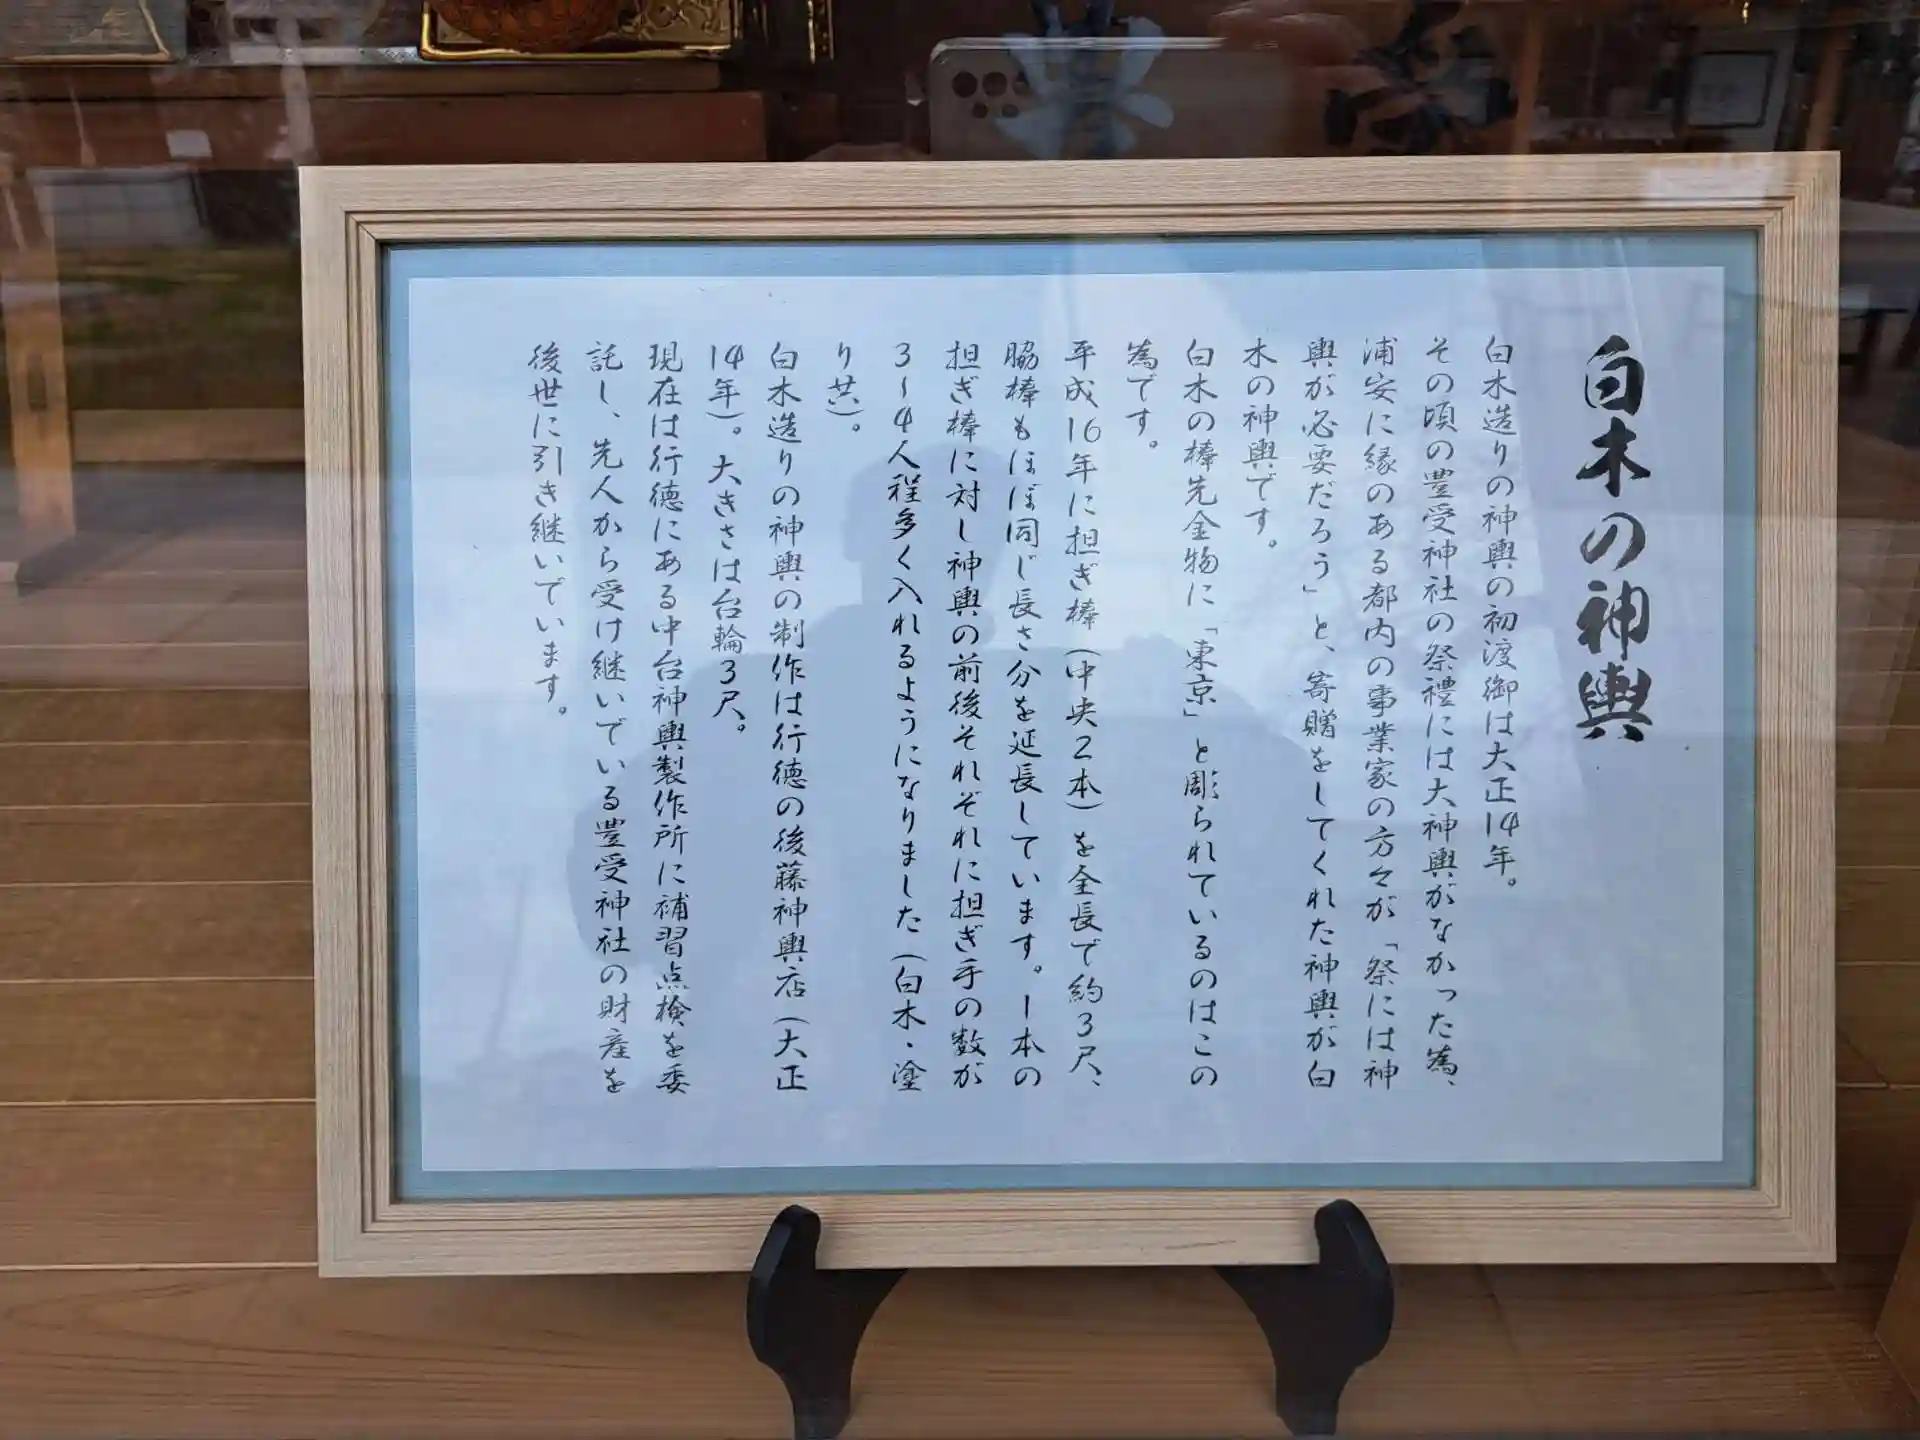 白木の神輿
白木造りの神輿の初渡御は大正14年。
その頃の豊受神社の祭禮には大神輿がなかった為、
浦安に縁のある都内の事業家の方々が「祭には神
輿が必要だろう」と、寄贈をしてくれた神輿が白
木の神輿です。
白木の棒先金物に「東京」と彫られているのはこの
為です。
平成16年に担ぎ棒(中央2本)を全長で約3尺、
脇棒もほぼ同じ長さ分を延長しています。1本の
担ぎ棒に対し神輿の前後それぞれに担ぎ手の数が
3〜4人程多く入れるようになりました(白木・塗
り共)。
白木造りの神輿の制作は行徳の後藤神輿店(大正
14年)。大きさは台輪3尺。
現在は行徳にある中台神輿製作所に補習点検を委
託し、先人から受け継いでいる豊受神社の財産を
後世に引き継いでいます。